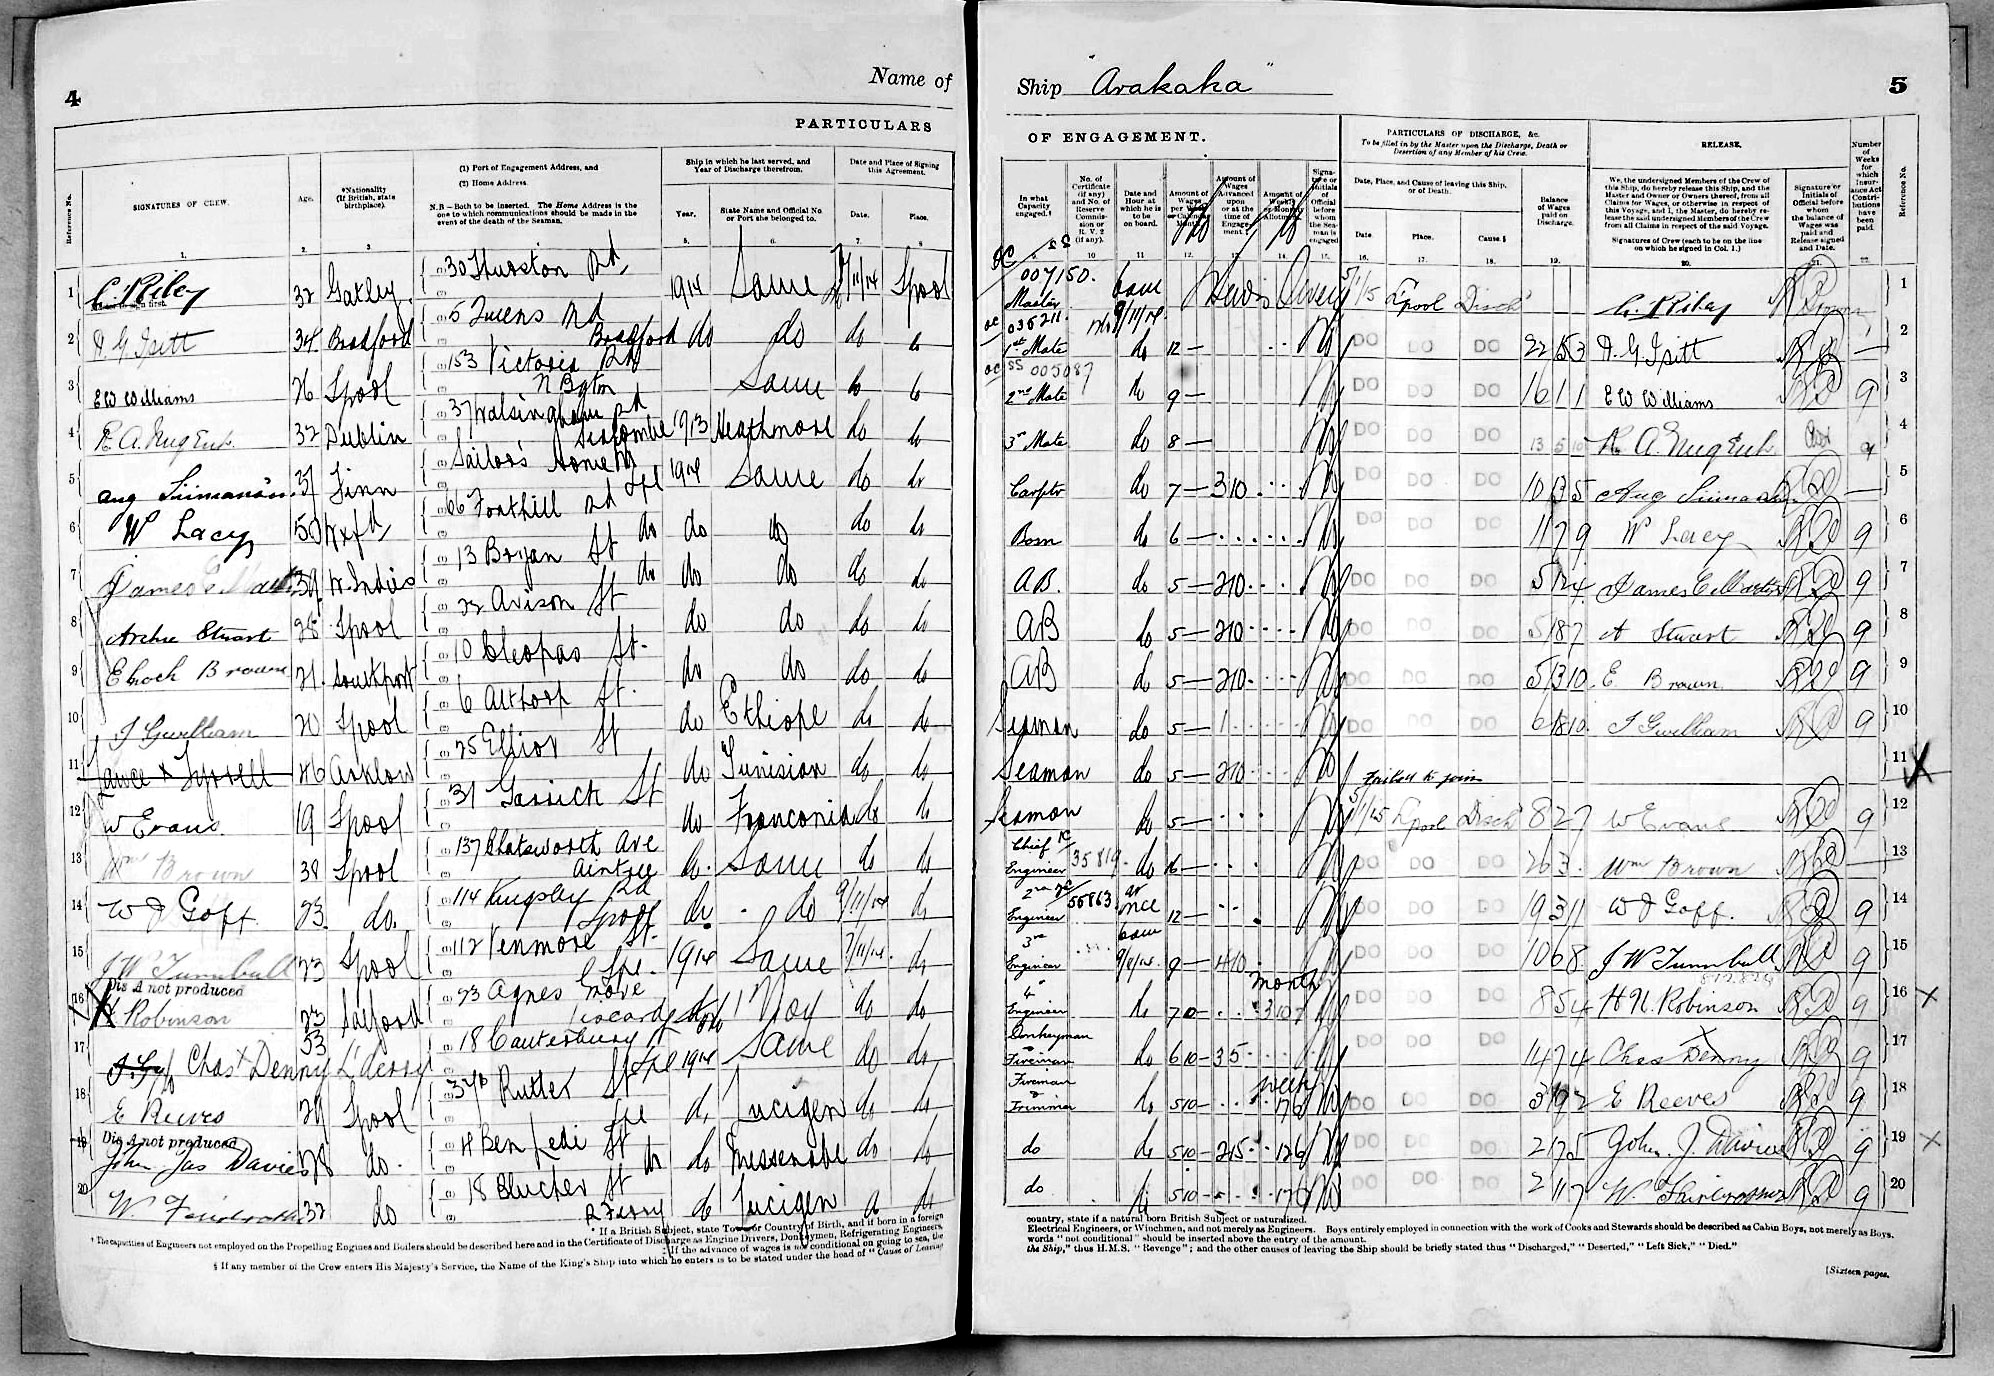 4
Name of
PARTICULARS
Reference No.
SIGNATURES OF CREW.
Age.
*Nationality
(If British, state
birthplace).
(1) Port of Engagement Address, and
(2) Home Address.
N.B.—Both to be inserted. The Home Address is the
one to which communications should be made in the
event of the death of the Seaman.
Ship in which he last served, and
Year of Discharge therefrom.
Year.
State Name and Official No.
or Port she belonged to.
Date and Place of Signing
this Agreement.
Date.
Place.
1. 2. 3. 5. 6. 7. 8
1 C. Riley 32 Gatley 30 Thurston Rd, 1914 Same 7/11/14 Lpool
2 34 Bradford 5 Queens Rd Bradford do do do do
3 EW Williams 26 Lpool 153 Victoria Rd N Bgton Same do do
4 32 Dublin 37 Walsingham Rd Seacombe 1913 Heathmore do do
5 Aug 37 Finn Sailor's Home Lpl 1914 Same do do
6 W Lacey 50 Wxfd 66 Fonthill Rd do do do do do
7 James 39 W. Indies 13 Bryan St do do do do do
8 Archie Stuart 28 Lpool 22 Avison St do do do do
9 Enoch Brown 21 Southport 10 Cleopas St. do do do do
10 J Gwilliam 20 Lpool 6 Althorp St. do Ethiope do do
11 Lawce X Tyrrell 46 Arklow 25 Elliot St do Tunisian do do
12 W Evans. 19 Lpool 31 Garrick St do Franconia do do
13 Wm Brown 38 Lpool 137 Chatsworth Ave Aintree do Same do do
14 W J Goff. 23 do. 114 Kingsley Rd Lpool do do 9/11/14 do
15 J W Turnbull 23 Lpool 112 Venmore St. Lpl. 1914 Same 7/11/14 do
Dis A not produced
16 H Robinson 23 Salford 23 Agnes Grove Liscard do do
17 Chas X Denny 53 L'derry 18 Canterbury St Lpl 1914 Same do do
18 E Reeves 29 Lpool 37b Rutter St Lpl do Lucigen do do
Dis A not produced
19 John Jas Davies 28 do. 4 Ben Ledi St do do do do
20 W 32 do 18 Blucher St R Ferry do Lucigen do do
* If a British Subject, state Town or County of Birth, and if born in a foreign
† The capacities of Engineers not employed on the Propelling Engines and Boilers should be described here and in the Certificate of Discharge as Engine Drivers, Donkeymen, Refrigerating Engineers,
‡ If the advance of wages is not conditional on going to sea, the
§ If any member of the Crew enters His Majesty's Service, the Name of the King's Ship into which he enters is to be stated under the head of "Cause of Leaving
Ship "Arakaka"
5
OF ENGAGEMENT.
PARTICULARS OF DISCHARGE, &c.
To be filled in by the Master upon the Discharge, Death or
Desertion of any Member of his Crew.
RELEASE.
Number
of
Weeks
for
which
Insur-
ance Act
Contri-
butions
have
been
paid.
Reference No.
In what
Capacity
engaged.†
No. of
Certificate
(if any)
and No. of
Reserve
Commis-
sion or
R.V. 2
(if any).
Date and
Hour at
which he is
to be
on board.
Amount of
Wages
Amount of
Wages
Advanced
upon
or at the
time of
Engage-
ment.‡
Amount of
Signa-
ture or
Initials
of Official
before
whom
the Sea-
man is
engaged
Date, Place, and Cause of leaving this Ship,
or of Death.
Date. Place. Cause.§
Balance
of Wages
paid on
Discharge.
We, the undersigned Members of the Crew of
this Ship, do hereby release this Ship, and the
Master and Owner or Owners thereof, from all
Claims for Wages, or otherwise in respect of
this Voyage, and I, the Master, do hereby re-
lease the said undersigned Members of the Crew
from all Claims in respect of the said Voyage.
Signatures of Crew (each to be on the line
on which he signed in Col. 1.)
Signature or
Initials of
Official before
whom
the balance of
Wages was
paid and
Release signed
and Date.
10. 11. 12. 13. 14. 15. 16. 17. 18. 19. 20. 21. 22.
OC 007150. Master 6am 9/11/14 5/1/15 Lpool Disch C. Riley 1
OC 036211. 1st Mate do 12 — DO DO DO 2
OC SS 005087 2nd Mate do 9 — DO DO DO 16 1 1 EW Williams 9 3
3rd Mate do 8 — DO DO DO 13 5 10 9 4
Carptr do 7 — 3 10 DO DO DO 10 13 5 Aug — 5
Bosn do 6 — DO DO DO 11 7 9 W Lacey 9 6
AB. do 5 — 2 10 DO DO DO James 9 7
AB do 5 — 2 10 DO DO DO 5 18 7 A Stuart 9 8
AB do 5 — 2 10 DO DO DO 5 13 10 E Brown 9 9
Seaman do 5 — 1 DO DO DO 6 18 10 J Gwilliam 9 10
Seaman do 5 — 2 10 Failed to join 11 X
Seaman do 5 — 5/1/15 Lpool Disch 8 2 7 W Evans 9 12
Chief Engineer 1C 35819 do 16 — DO DO DO 26 3 Wm Brown — 13
2nd Engineer 2C 55863 at once 12 — DO DO DO 19 3 11 W J Goff. 9 14
3rd Engineer 6am 9/11/14 9 — 4 10 DO DO DO 10 6 8 J W Turnbull 9 15
4th Engineer do 7 0 Month 3 10 DO DO DO 8 5 4 H N. Robinson 9 16 X
Donkeyman & Fireman do 6 10 — 3 5 DO DO DO 14 7 4 Chas X Denny 9 17
Fireman & Trimmer do 5 10 — week 17 6 DO DO DO 3 19 2 E Reeves 9 18
do do 5 10 — 2 15 12 6 DO DO DO 2 17 5 John. J. Davies 9 19 X
do do 5 10 — 17 6 DO DO DO 2 11 7 W. 9 20
country, state if a natural born British Subject or naturalized.
Electrical Engineers, or Winchmen, and not merely as Engineers. Boys entirely employed in connection with the work of Cooks and Stewards should be described as Cabin Boys, not merely as Boys.
words "not conditional" should be inserted above the entry of the amount.
the Ship," thus H.M.S. "Revenge"; and the other causes of leaving the Ship should be briefly stated thus "Discharged," "Deserted," "Left Sick," "Died."
[Sixteen pages.